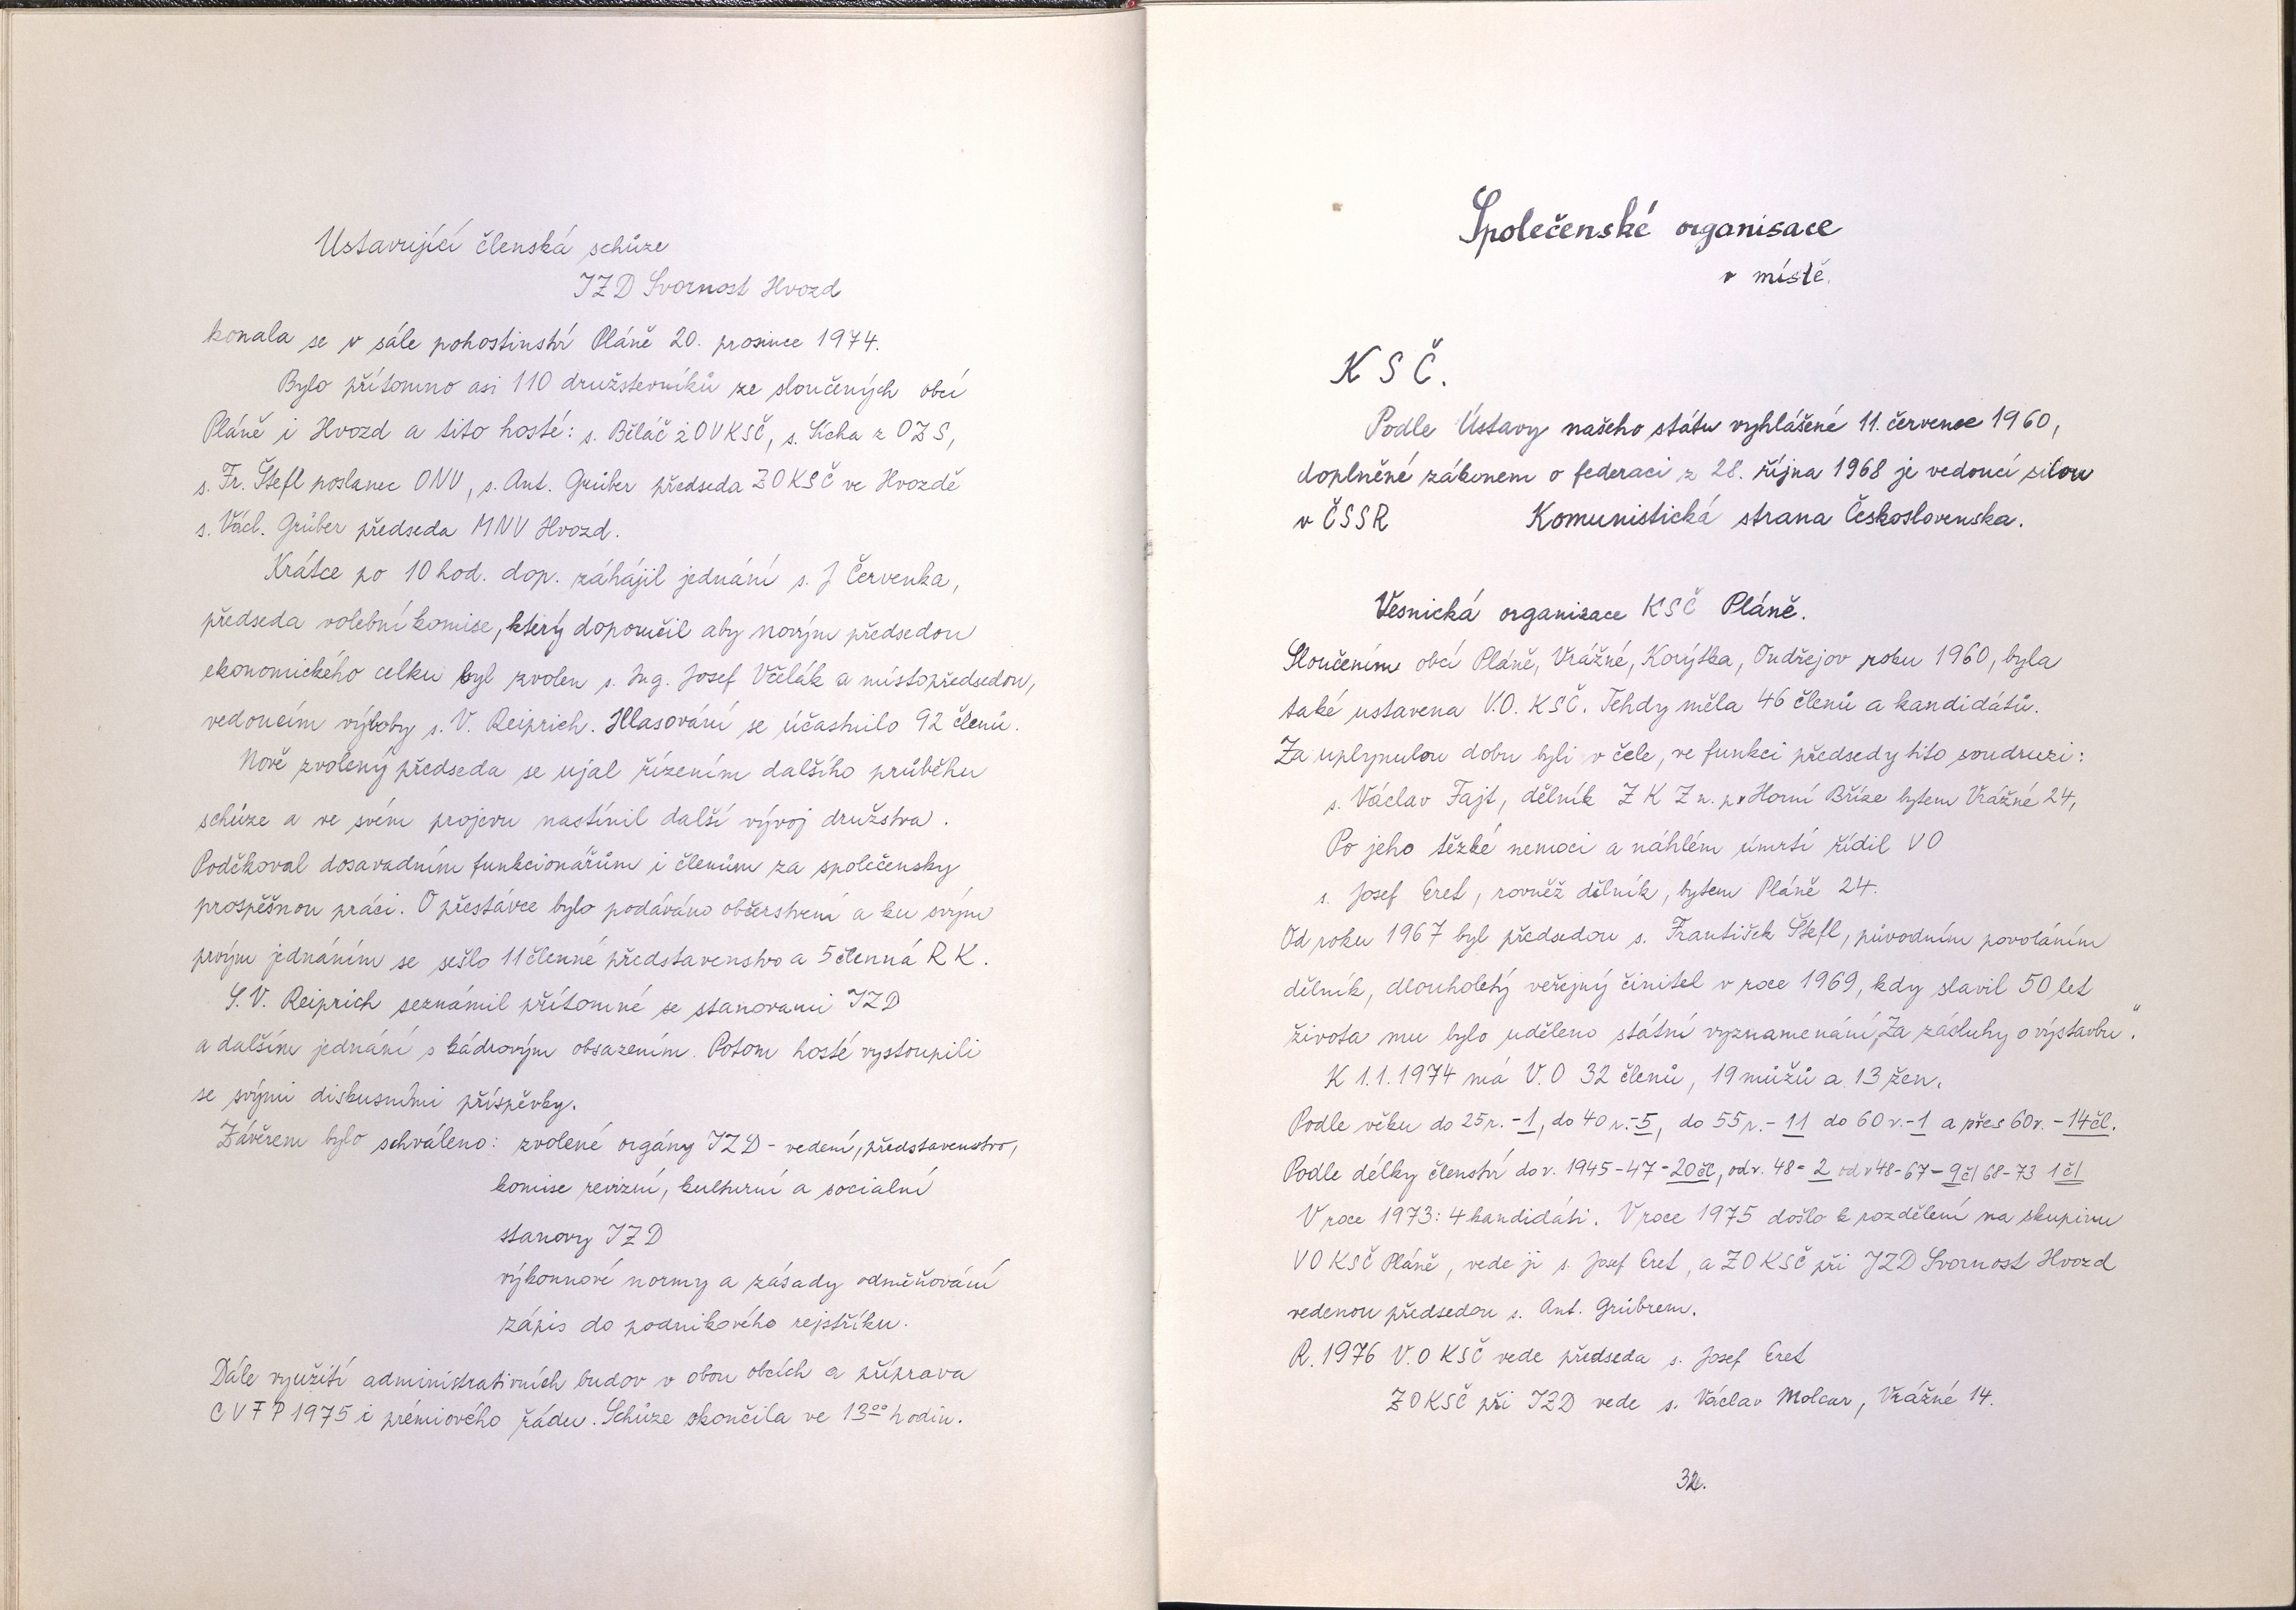 Ustavující členská schůze
JZD Svornost Hvozd
konala se v sále pohostinství Pláně 20. prosince 1974.
Bylo přítomno asi 110 družstevníků ze sloučených obcí
Pláně i Hvozd a tito hosté: s. Běláč z OVKSČ, s. Sícha z OZS,
s. Fr. Štefl poslanec ONV, s. Ant. Grüber předseda ZOKSČ ve Hvozdě
s. Václ. Grüber předseda MNV Hvozd.
Krátce po 10 hod. dop. záhájil jednání s. J Červenka,
předseda volební komise, který doporučil aby novým předsedou
ekonomického celku byl zvolen s. Ing. Josef Včelák a místopředsedou,
vedoucím výroby s. V. Reiprich. Hlasování se účastnilo 92 členů.
Nově zvolený předseda se ujal řízením dalšího průběhu
schůze a ve svém projevu nastínil další vývoj družstva.
Poděkoval dosavadním funkcionářům i členům za společensky
prospěšnou práci. O přestávce bylo podáváno občerstvení a ku svým
prvým jednáním se sešlo 11členné představenstvo a 5členná R K.
S. V. Reiprich seznámil přítomné se stanovami JZD
a dalším jednání s kádrovým obsazením. Potom hosté vystoupili
se svými diskusními příspěvky.
Závěrem bylo schváleno: zvolené orgány JZD - vedení, představenstvo,
komise revizní, kulturní a socialní
stanovy JZD
výkonnové normy a zásady odměňování
zápis do podnikového rejstříku.
Dále využití administrativních budov v obou obcích a příprava
CVFP 1975 i prémiového řádu. Schůze skončila ve 13⁰⁰ hodin.
Společenské organisace
v místě.
K S Č.
Podle Ústavy našeho státu vyhlášené 11. července 1960,
doplněné zákonem o federaci z 28. října 1968 je vedoucí silou
v ČSSR Komunistická strana Československa.
Vesnická organizace KSČ Pláně.
Sloučením obcí Pláně, Vrážné, Korýtka, Ondřejov roku 1960, byla
také ustavena V.O. KSČ. Tehdy měla 46 členů a kandidátů.
Za uplynulou dobu byli v čele, ve funkci předsedy tito soudruzi:
s. Václav Fajt, dělník Z K Z n. p. v Horní Bříze bytem Vrážné 24,
Po jeho těžké nemoci a náhlém úmrtí řídil VO
s. Josef Eret, rovněž dělník, bytem Pláně 24.
Od roku 1967 byl předsedou s. František Štefl, původním povoláním
dělník, dlouholetý veřejný činitel v roce 1969, kdy slavil 50 let
života mu bylo uděleno státní vyznamenání „Za zásluhy o výstavbu“.
K 1.1.1974 má V.O 32 členů, 19 můžů a 13 žen.
Podle věku do 25 r. - 1, do 40 r. - 5, do 55 r. - 11 do 60 r. - 1 a přes 60 r. - 14 čl.
Podle délky členství do r. 1945-47 = 20 čl, od r. 48 = 2 od r 48-67 = 9 čl 68-73 1 čl
V roce 1973: 4 kandidáti. V roce 1975 došlo k rozdělení na skupinu
VO KSČ Pláně, vede ji s. Josef Eret, a ZO KSČ při JZD Svornost Hvozd
vedenou předsedou s. Ant. Grübrem.
R. 1976 V.O KSČ vede předseda s. Josef Eret
ZO KSČ při JZD vede s. Václav Molcar, Vrážné 14.
32.